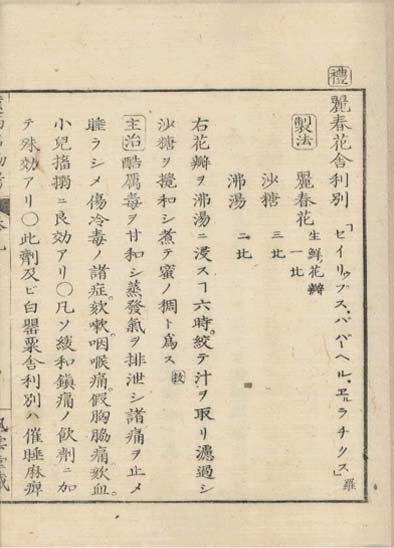 禮
麗春花舎利別 「セイリュプス、パパーヘル、ヱルラチクス」羅
製法 麗春花 生鮮花瓣 一比
沙糖 三比
沸湯 二比
右花瓣ヲ沸湯ニ浸スヿ六時。絞テ汁ヲ取リ濾過シ
沙糖ヲ攪和シ煮テ蜜ノ稠ト爲ス 扶
主治 酷厲毒ヲ甘和シ蒸發氣ヲ排泄シ諸痛ヲ止メ
睡ラシメ傷冷毒ノ諸症。欬嗽。咽喉痛。假胸脇痛。欬血。
小兒搐搦ニ良効アリ〇凡ソ緩和鎭痛ノ飲劑ニ加
テ殊効アリ〇此劑及ビ白罌粟舎利別ハ催睡麻痺